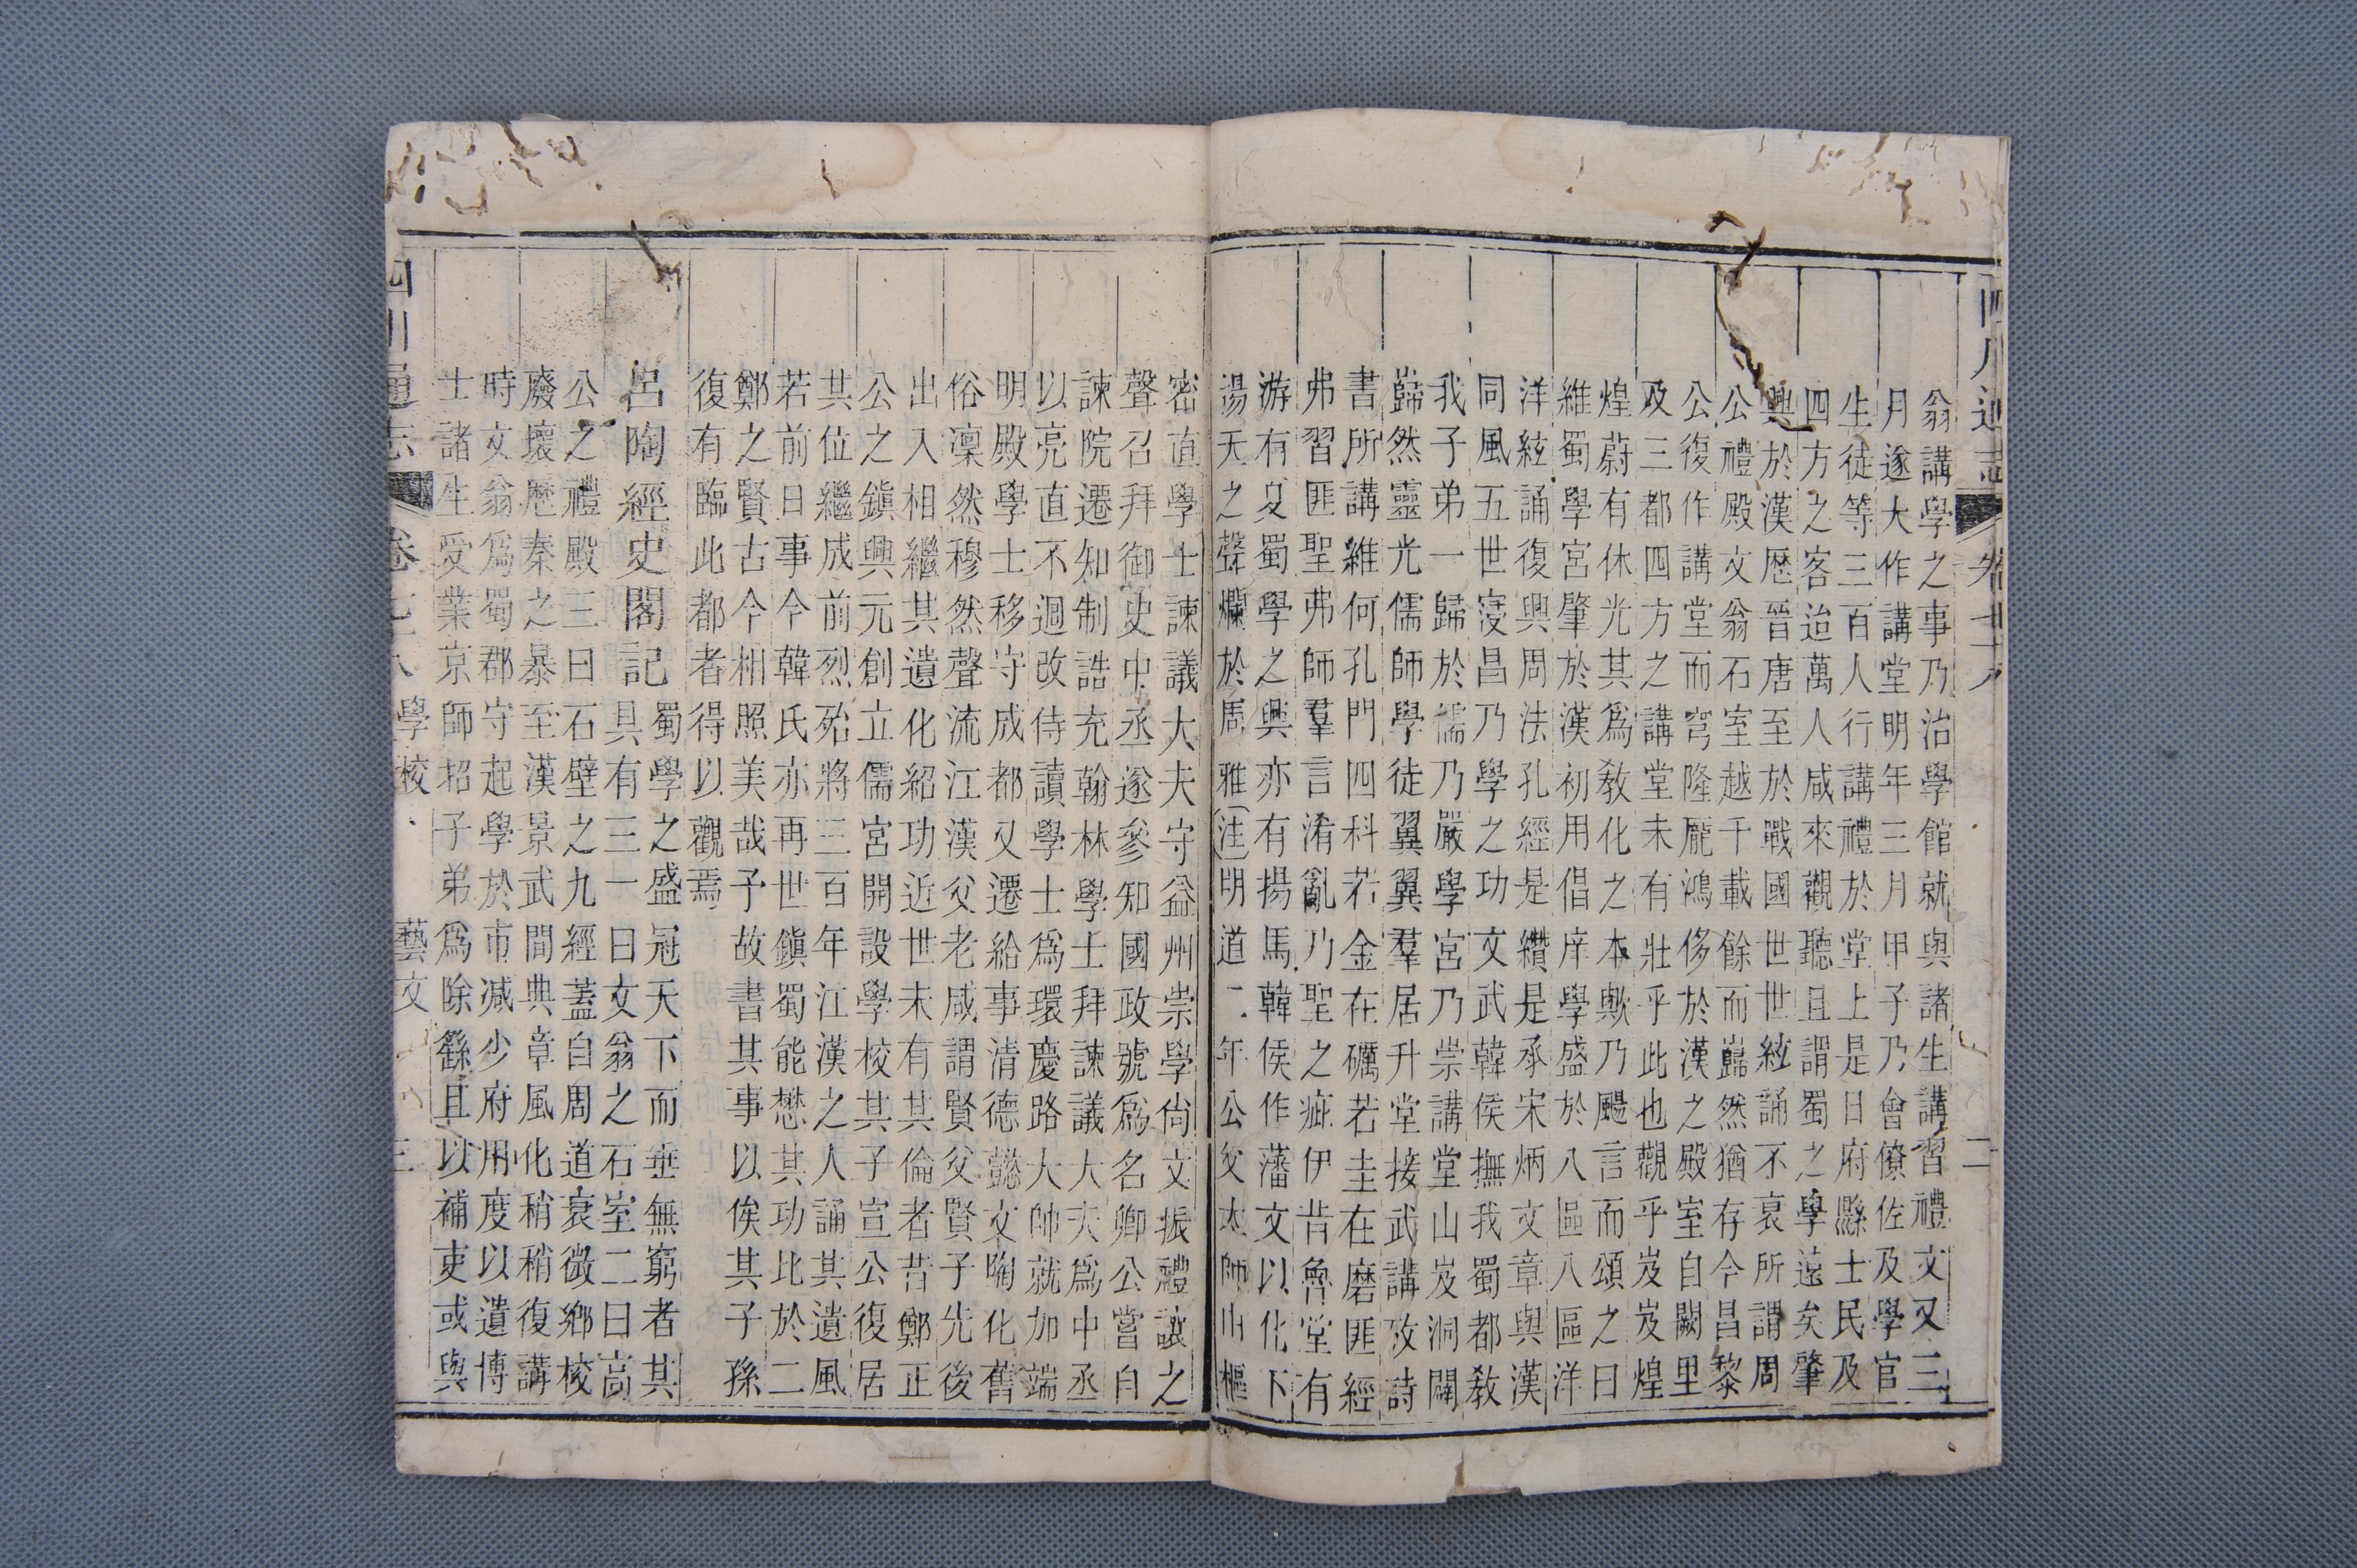 四川通志 卷七十八 二
翁講學之事乃治學館就與諸生講習禮文又三
月遂大作講堂明年三月甲子乃會僚佐及學官
生徒等三百人行講禮於堂上是日府縣士民及
四方之客迨萬人咸來觀聽且謂蜀之學遠矣肇
興於漢歷晉唐至於戰國世世絃誦不衰所謂周
公禮殿文翁石室越千載餘而巋然猶存今昌黎
公復作講堂而穹隆龐鴻侈於漢之殿室自闕里
及三都四方之講堂未有壯乎此也觀乎岌岌煌
煌蔚有休光其為教化之本歟乃颺言而頌之曰
維蜀學宮肇於漢初用倡庠學盛於八區八區洋
洋絃誦復興周法孔經是纘是承宋炳文章與漢
同風五世寖昌乃學之功文武韓侯撫我蜀都教
我子弟一歸於儒乃嚴學宮乃崇講堂山岌洞闢
巋然靈光儒師學徒翼翼羣居升堂接武講攻詩
書所講維何孔門四科若金在礪若圭在磨匪經
弗習匪聖弗師羣言淆亂乃聖之疵伊昔魯堂有
游有夏蜀學之興亦有揚馬韓侯作藩文以化下
湯天之聲爛於周雅注明道二年公父太師由樞
密直學士諫議大夫守益州崇學尚文振禮讓之
聲召拜御史中丞遂參知國政號為名卿公嘗自
諫院遷知制誥充翰林學士拜諫議大夫為中丞
以亮直不迴改侍讀學士為環慶路大帥就加端
明殿學士移守成都又遷給事清德懿文陶化舊
俗凜然穆然聲流江漢父老咸謂賢父賢子先後
出入相繼其遺化紹功近世未有其倫者昔鄭正
公之鎮興元創立儒宮開設學校其子宣公復居
其位繼成前烈殆將三百年江漢之人誦其遺風
若前日事今韓氏亦再世鎮蜀能懋其功比於二
鄭之賢古今相照美哉予故書其事以俟其子孫
復有臨此都者得以觀焉
呂陶經史閣記 蜀學之盛冠天下而垂無窮者其
具有三一曰文翁之石室二曰高
公之禮殿三曰石壁之九經蓋自周道衰微鄉校
廢壞歷秦之暴至漢景武間典章風化稍稍復講
時文翁為蜀郡守起學於市減少府用度以遺博
士諸生受業京師招子弟為除繇且以補吏或與
四川通志 卷七十八 學校 藝文 三